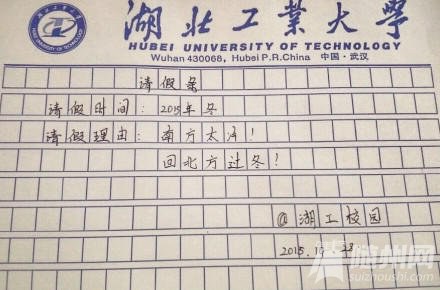 湖北工業大學
HUBEI UNIVERSITY OF TECHNOLOGY
Wuhan 430068, Hubei P.R.China 中国·武汉
请假条
请假时间：2015年冬
请假理由：南方太冷！
回北方过冬！
@湖工校园
2015.10.28
随州网
suizhoushi.com